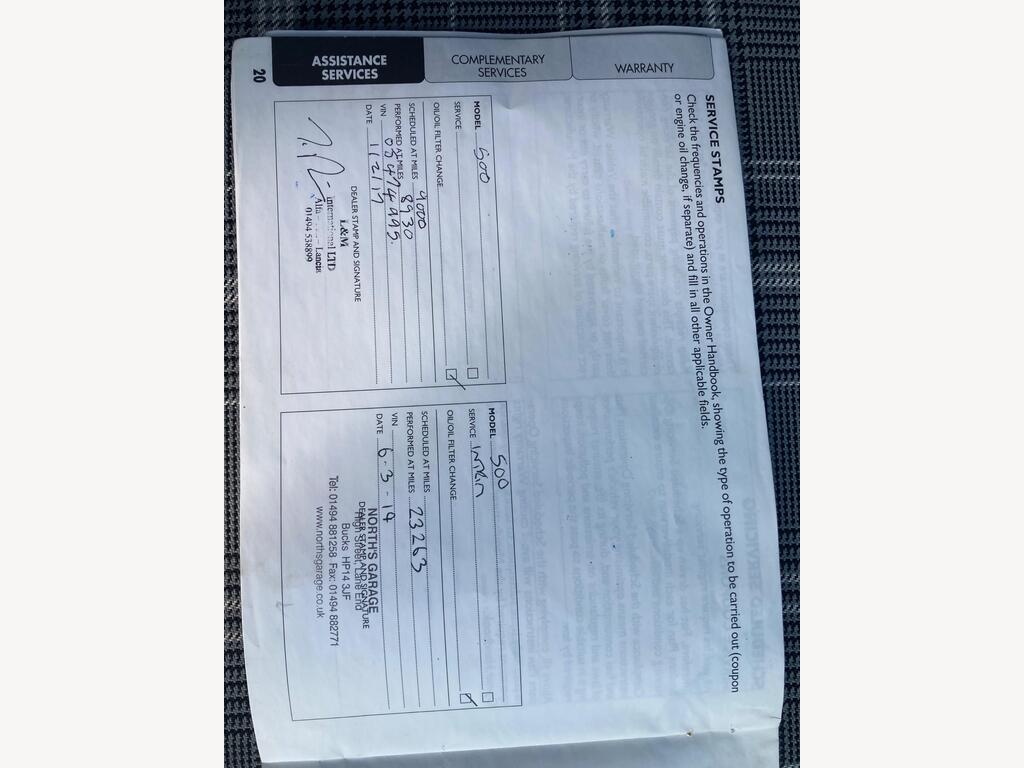 ASSISTANCE
SERVICES
COMPLEMENTARY
SERVICES
WARRANTY
SERVICE STAMPS
Check the frequencies and operations in the Owner Handbook, showing the type of operation to be carried out (coupon
or engine oil change, if separate) and fill in all other applicable fields.
MODEL 500
SERVICE
OIL/OIL FILTER CHANGE
SCHEDULED AT MILES 9000
PERFORMED AT MILES 8930
VIN 08474995.
DATE 11/2/17
DEALER STAMP AND SIGNATURE
L&M
International LTD
Alfa Lancia
01494 538899
MODEL 500
SERVICE
OIL/OIL FILTER CHANGE
SCHEDULED AT MILES
PERFORMED AT MILES 23263
VIN
DATE 6-3-19
NORTH'S GARAGE
DEALER STAMP AND SIGNATURE
High Street, Lane End
Bucks HP14 3JF
Tel: 01494 881258 Fax: 01494 882771
www.northsgarage.co.uk
20